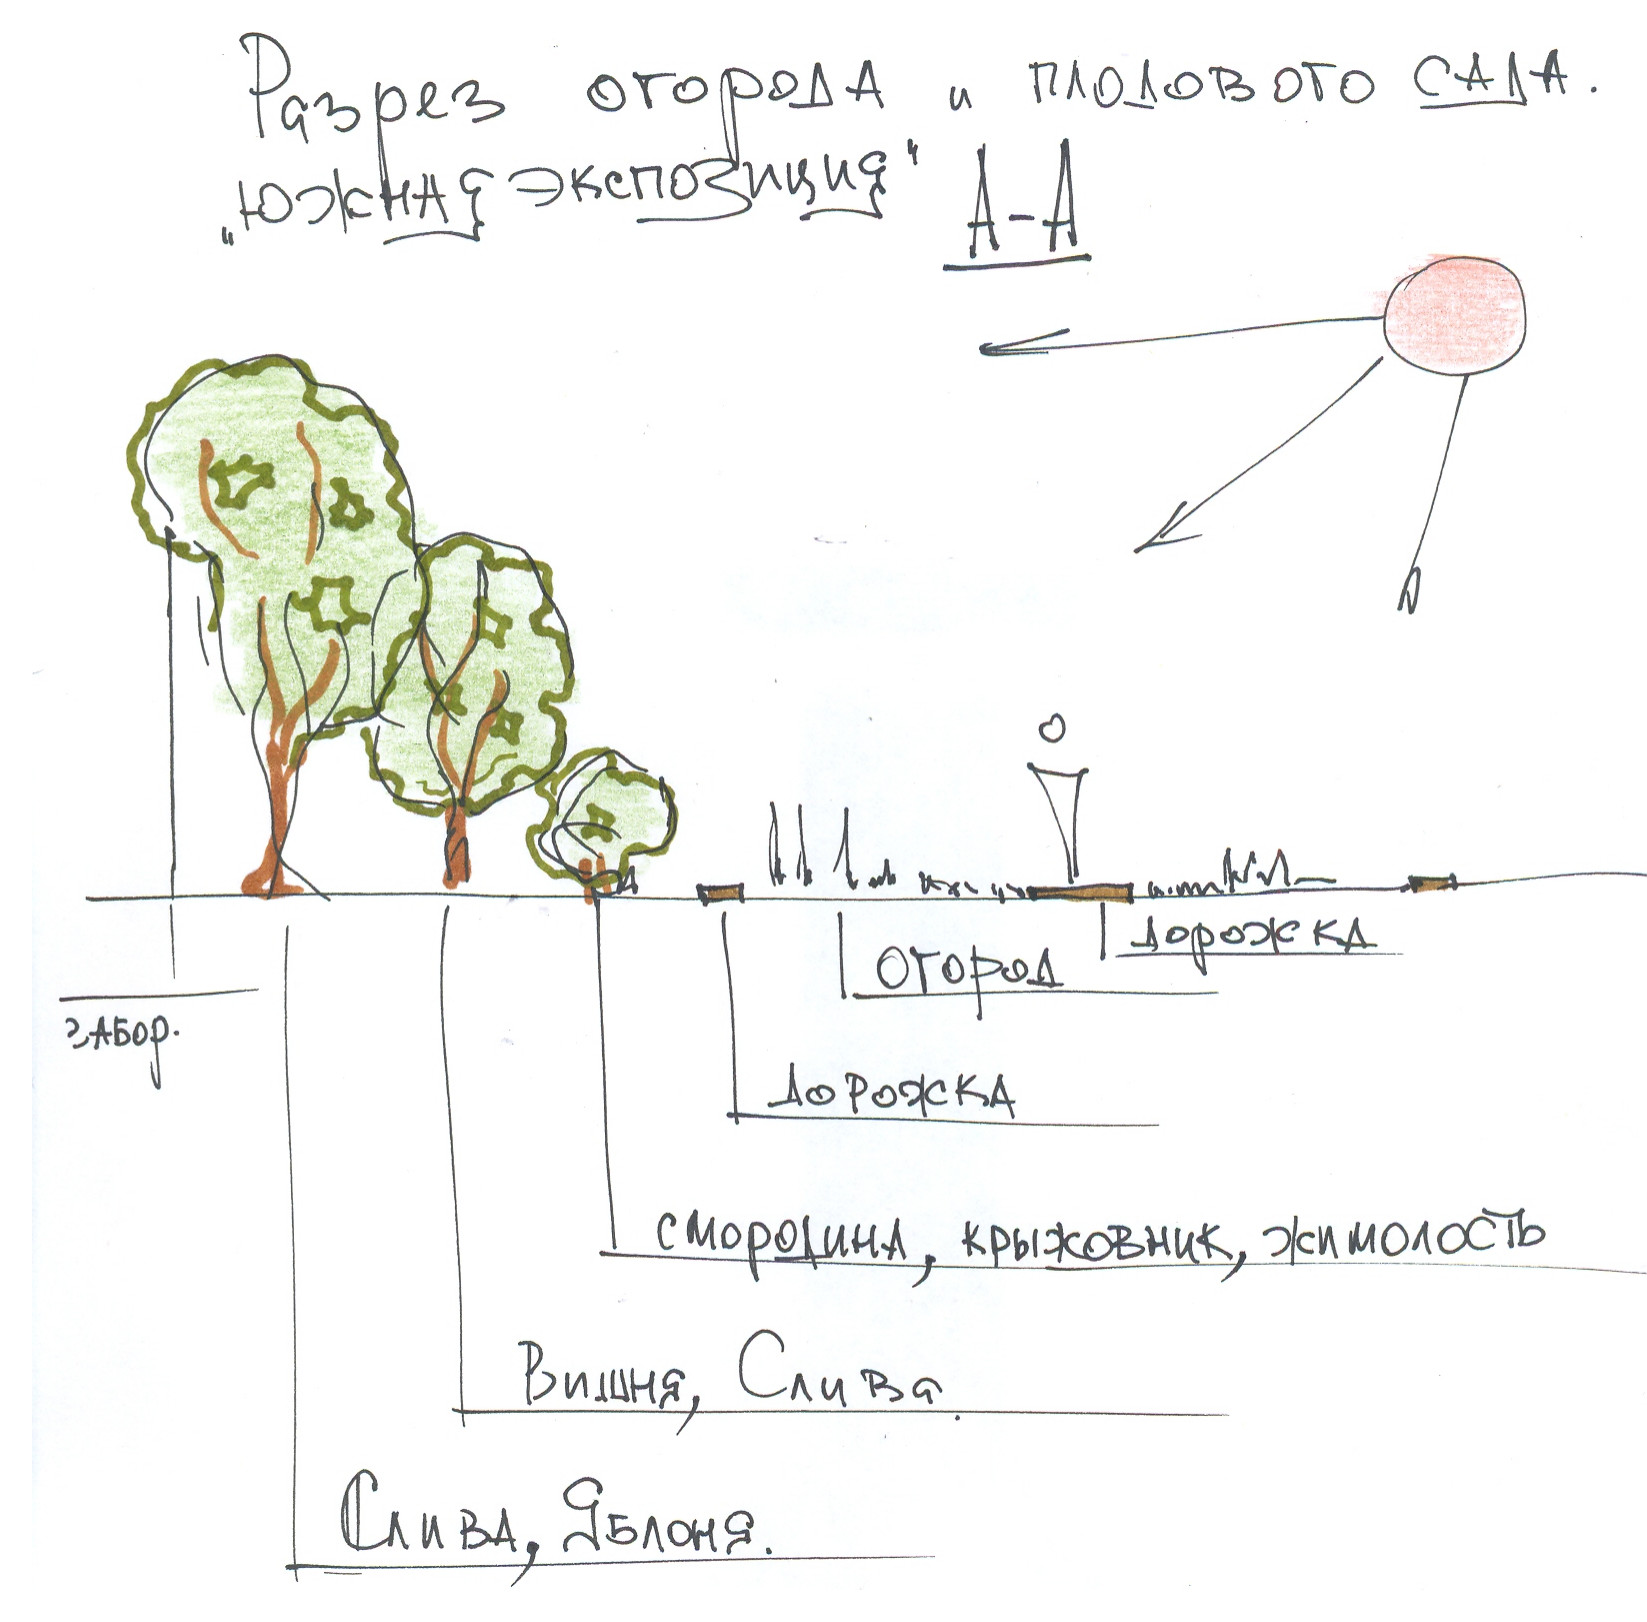 Разрез огорода и плодового сада.
„Южная экспозиция"
А-А
дорожка
огород
забор.
дорожка
смородина, крыжовник, жимолость
Вишня, Слива.
Слива, Яблоня.